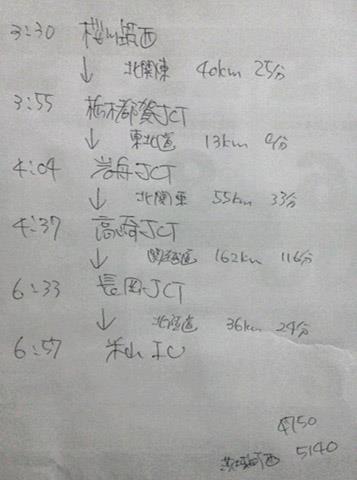 3:30 桜川筑西
↓ 北関東 40km 25分
3:55 栃木都賀JCT
↓ 東北道 13km 9分
4:04 岩舟JCT
↓ 北関東 55km 33分
4:37 高崎JCT
↓ 関越道 162km 116分
6:33 長岡JCT
↓ 北陸道 36km 24分
6:57 米山IC
4750
5140